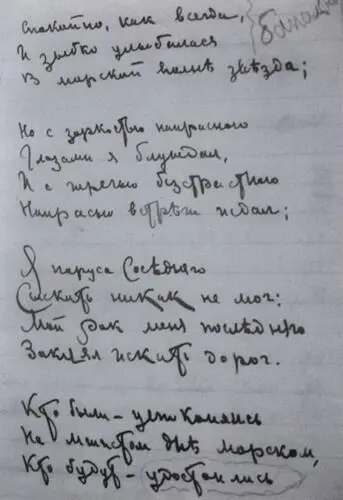 Спокойно, как всегда,
И зыбко улыбалася
В морской волнѣ звѣзда;
Но с зоркостью напрасного
Глазами я блуждал,
И с горечью безстрастною
Напрасно встрѣчи ждал;
Я паруса Сосѣдняго
Сыскать никак не мог:
Мой рок меня последняго
Заклял искать дорог.
Кто были –
На мшистом днѣ морском,
Кто будут – удостоились